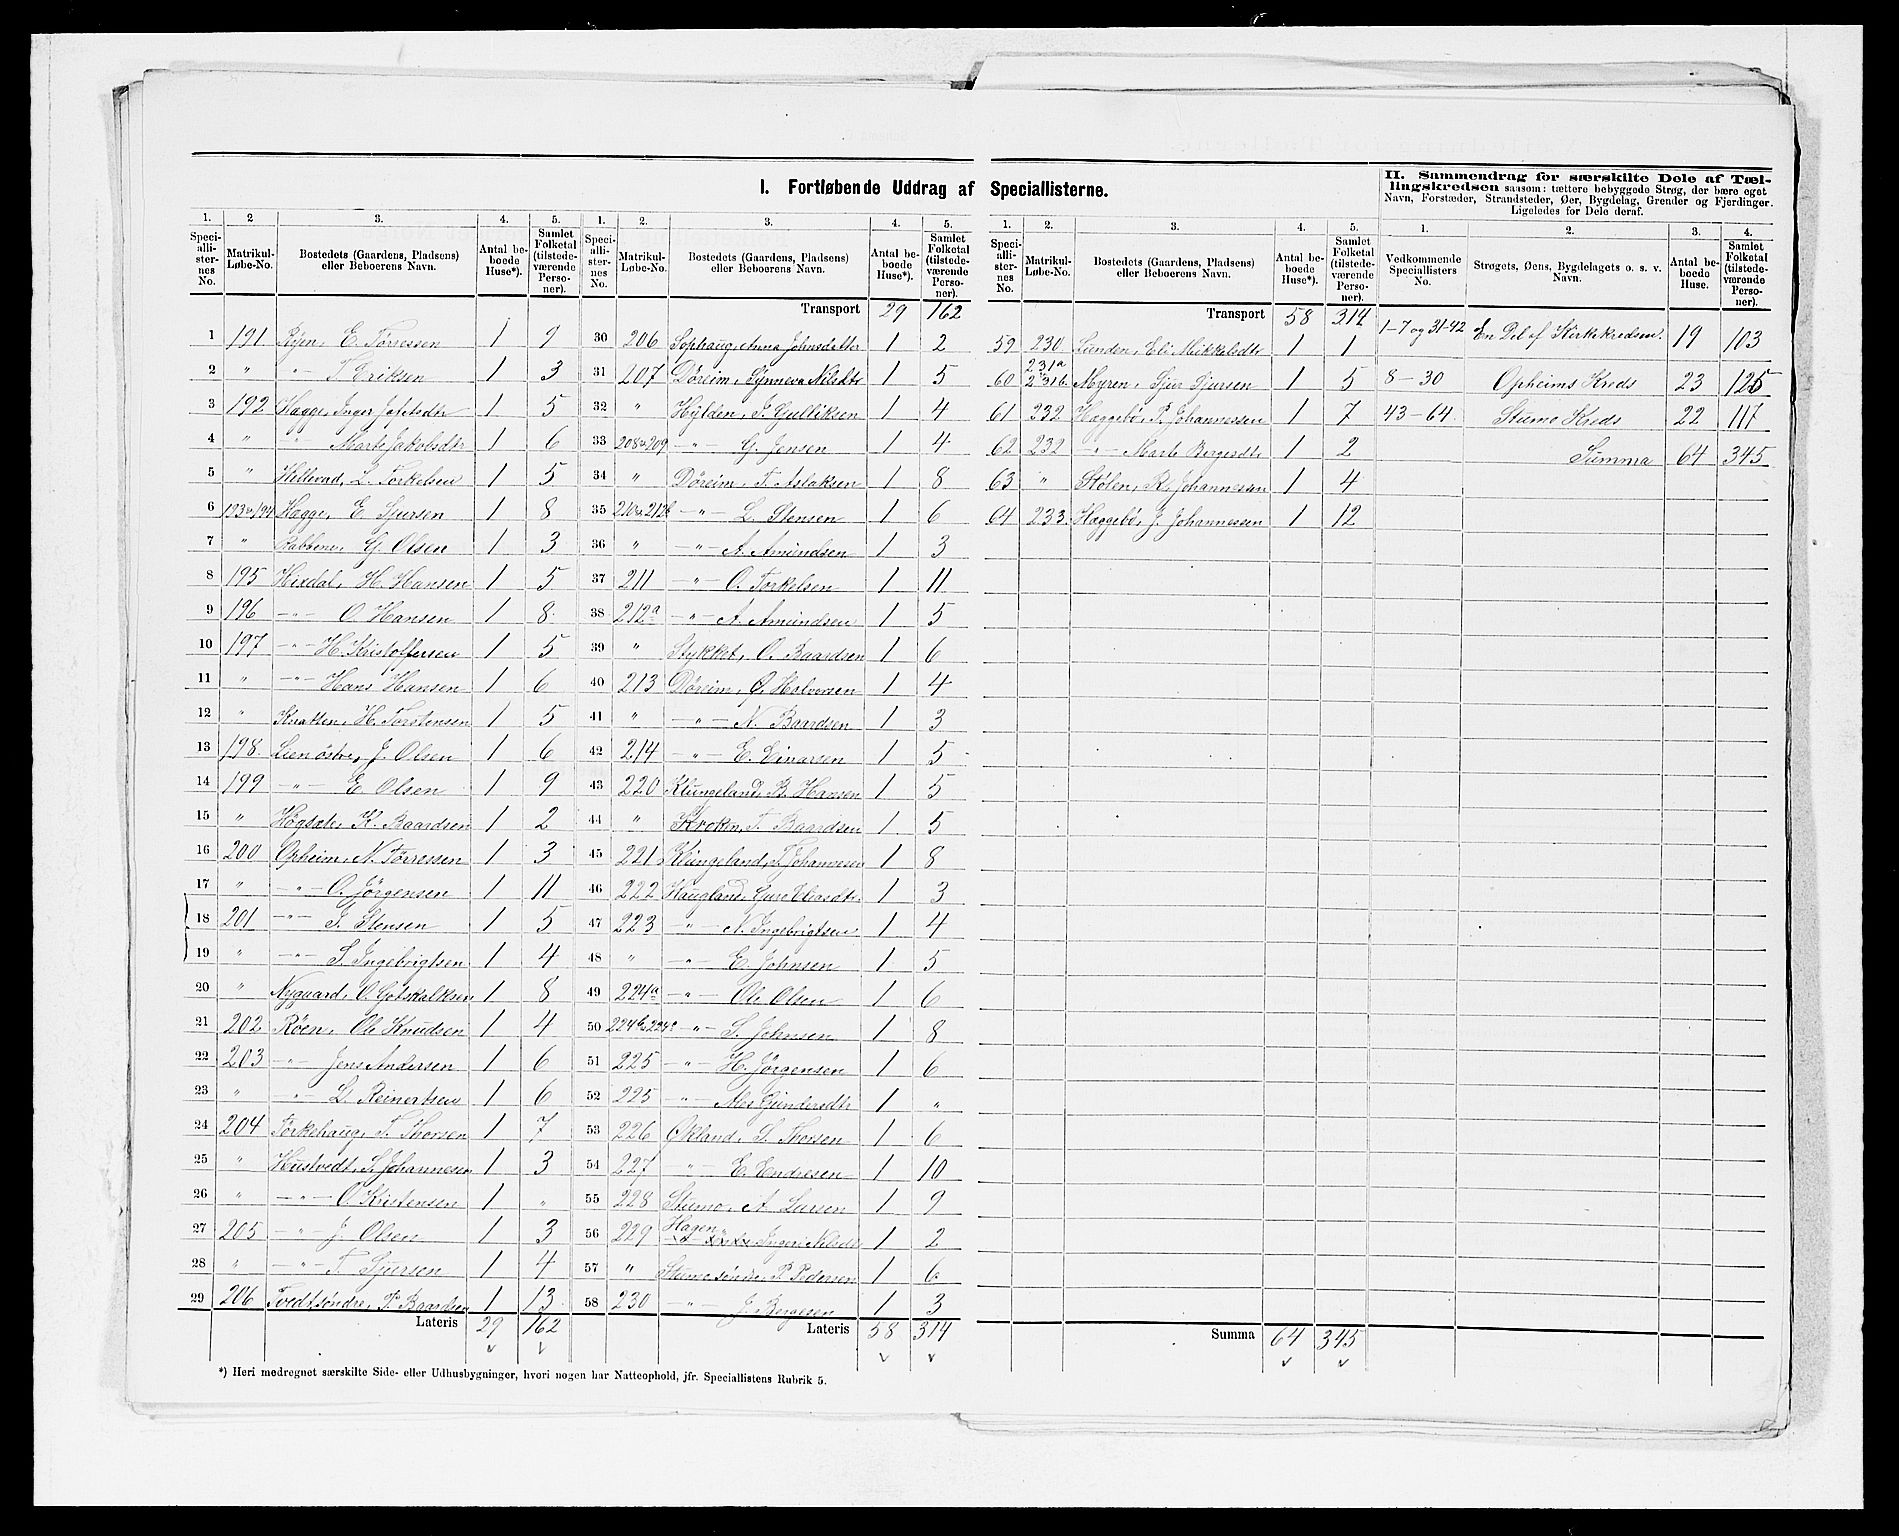 I. Fortløbende Uddrag af Speciallisterne.
II. Sammendrag for særskilte Dele af Tællingskredsen saasom: tættere bebyggede Strøg, der bære eget Navn, Forstæder, Strandsteder, Øer, Bygdelag, Grender og Fjerdinger. Ligeledes for Dele deraf.
1. 2 3. 4. 5. 1. 2. 3. 4. 5.
Speciallisternes No. Matrikul-Løbe-No. Bostedets (Gaardens, Pladsens) eller Beboerens Navn. Antal beboede Huse*). Samlet Folketal (tilstedeværende Personer).
1 191 Röjen, E. Törressen 1 9
2 " " T. Eriksen 1 3
3 192 Hægge, Inger Jafetsdtr 1 5
4 " " Marte Jakobsdtr 1 6
5 " Hellevad, L. Torkelsen 1 5
6 193 & 194 Hægge, E. Sjursen 1 8
7 " Rabbene, G. Olsen 1 3
8 195 Hixdal, H. Hansen 1 5
9 196 — " — O. Hansen 1 8
10 197 — " — H. Kristoffersen 1 5
11 " — " — Hans Hansen 1 6
12 " Knatten, H. Torstensen 1 5
13 198. Lien östre, J. Olsen 1 6
14 199 — " — E. Olsen 1 9
15 " Högsæte, K. Baardsen 1 2
16 200 Opheim, N. Törressen 1 3
17 " — " — O. Jörgensen 1 11
18 201 — " — T. Stensen 1 5
19 " — " — S. Ingebrigtsen 1 4
20 " Nygaard, O. Gotskalksen 1 8
21 202 Röen, Ole Knudsen 1 4
22 203 — " — Jens Andersen 1 6
23 " — " — L. Reinertsen 1 6
24 204 Torkehaug, T. Thorsen 1 7
25 " Hustvedt, S. Johannesen 1 3
26 " — " — O. Kristensen 1 "
27 205 — " — J. Olsen 1 3
28 " — " — T. Sjursen 1 4
29 206 Tvedt söndre, P. Baardsen 1 13
Lateris 29 162
Transport 29 162
30 206 Sophaug, Anna Johnsdatter 1 2
31 207 Döreim, Synneva Nilsdtr 1 5
32 " Hylden, J. Gulliksen 1 4
33 208 & 209 — " — G. Jensen 1 4
34 " Döreim, T. Aslaksen 1 8
35 210 & 212b — " — L. Stensen 1 6
36 " — " — A. Amundsen 1 3
37 211 — " — O. Torkelsen 1 11
38 212a — " — A. Amundsen 1 5
39 " Stykket, O. Baardsen 1 6
40 213 Döreim, O. Halvorsen 1 4
41 " — " — N. Baardsen 1 3
42 214 — " — E. Einarsen 1 5
43 220 Klungeland, B. Hansen 1 5
44 " Kroken, T. Baardsen 1 5
45 221 Klungeland, T. Johannesen 1 8
46 222 Haugland, Guro Eliasdtr. 1 3
47 223 — " — N. Ingebrigtsen 1 4
48 " — " — E. Johnsen 1 5
49 224a — " — Ole Olsen 1 6
50 224b & 224c — " — S. Johnsen 1 8
51 225 — " — H. Jörgensen 1 6
52 225 — " — Ales Gundersdtr 1 "
53 226 Økland, S. Thorsen 1 6
54 227 — " — E. Endresen 1 10
55 228 Stumo, A. Larsen 1 9
56 229 Hagen Ingeri Nilsdtr 1 2
57 " Stumo söndre, P. Pedersen 1 6
58 230 — " — J. Bergesen 1 3
Lateris 58 314
Transport 58 314
59 230 Lunden, Eli Mikkelsdtr 1 1
60 231a & 231b. Myren, Sjur Sjursen 1 5
61 232 Hæggebö, P. Johannessen 1 7
62 232 — " — Marte Bergesdtr 1 2
63 " Stølen, R. Johannesen 1 4
64 233. Hæggebö, J. Johannessen 1 12
Summa 64 345
1. 2. 3. 4.
Vedkommende Speciallisters No. Strøgets, Øens, Bygdelagets o. s. v. Navn. Antal beboede Huse. Samlet Folketal (tilstedeværende Personer).
1–7 og 31–42 En Del af Kirkekredsen. 19 103
8 – 30 Opheims Kreds 23 125
43 – 64. Stumo Kreds 22 117
Summa 64 345
*) Heri medregnet særskilte Side- eller Udhusbygninger, hvori nogen har Natteophold, jfr. Speciallistens Rubrik 5.